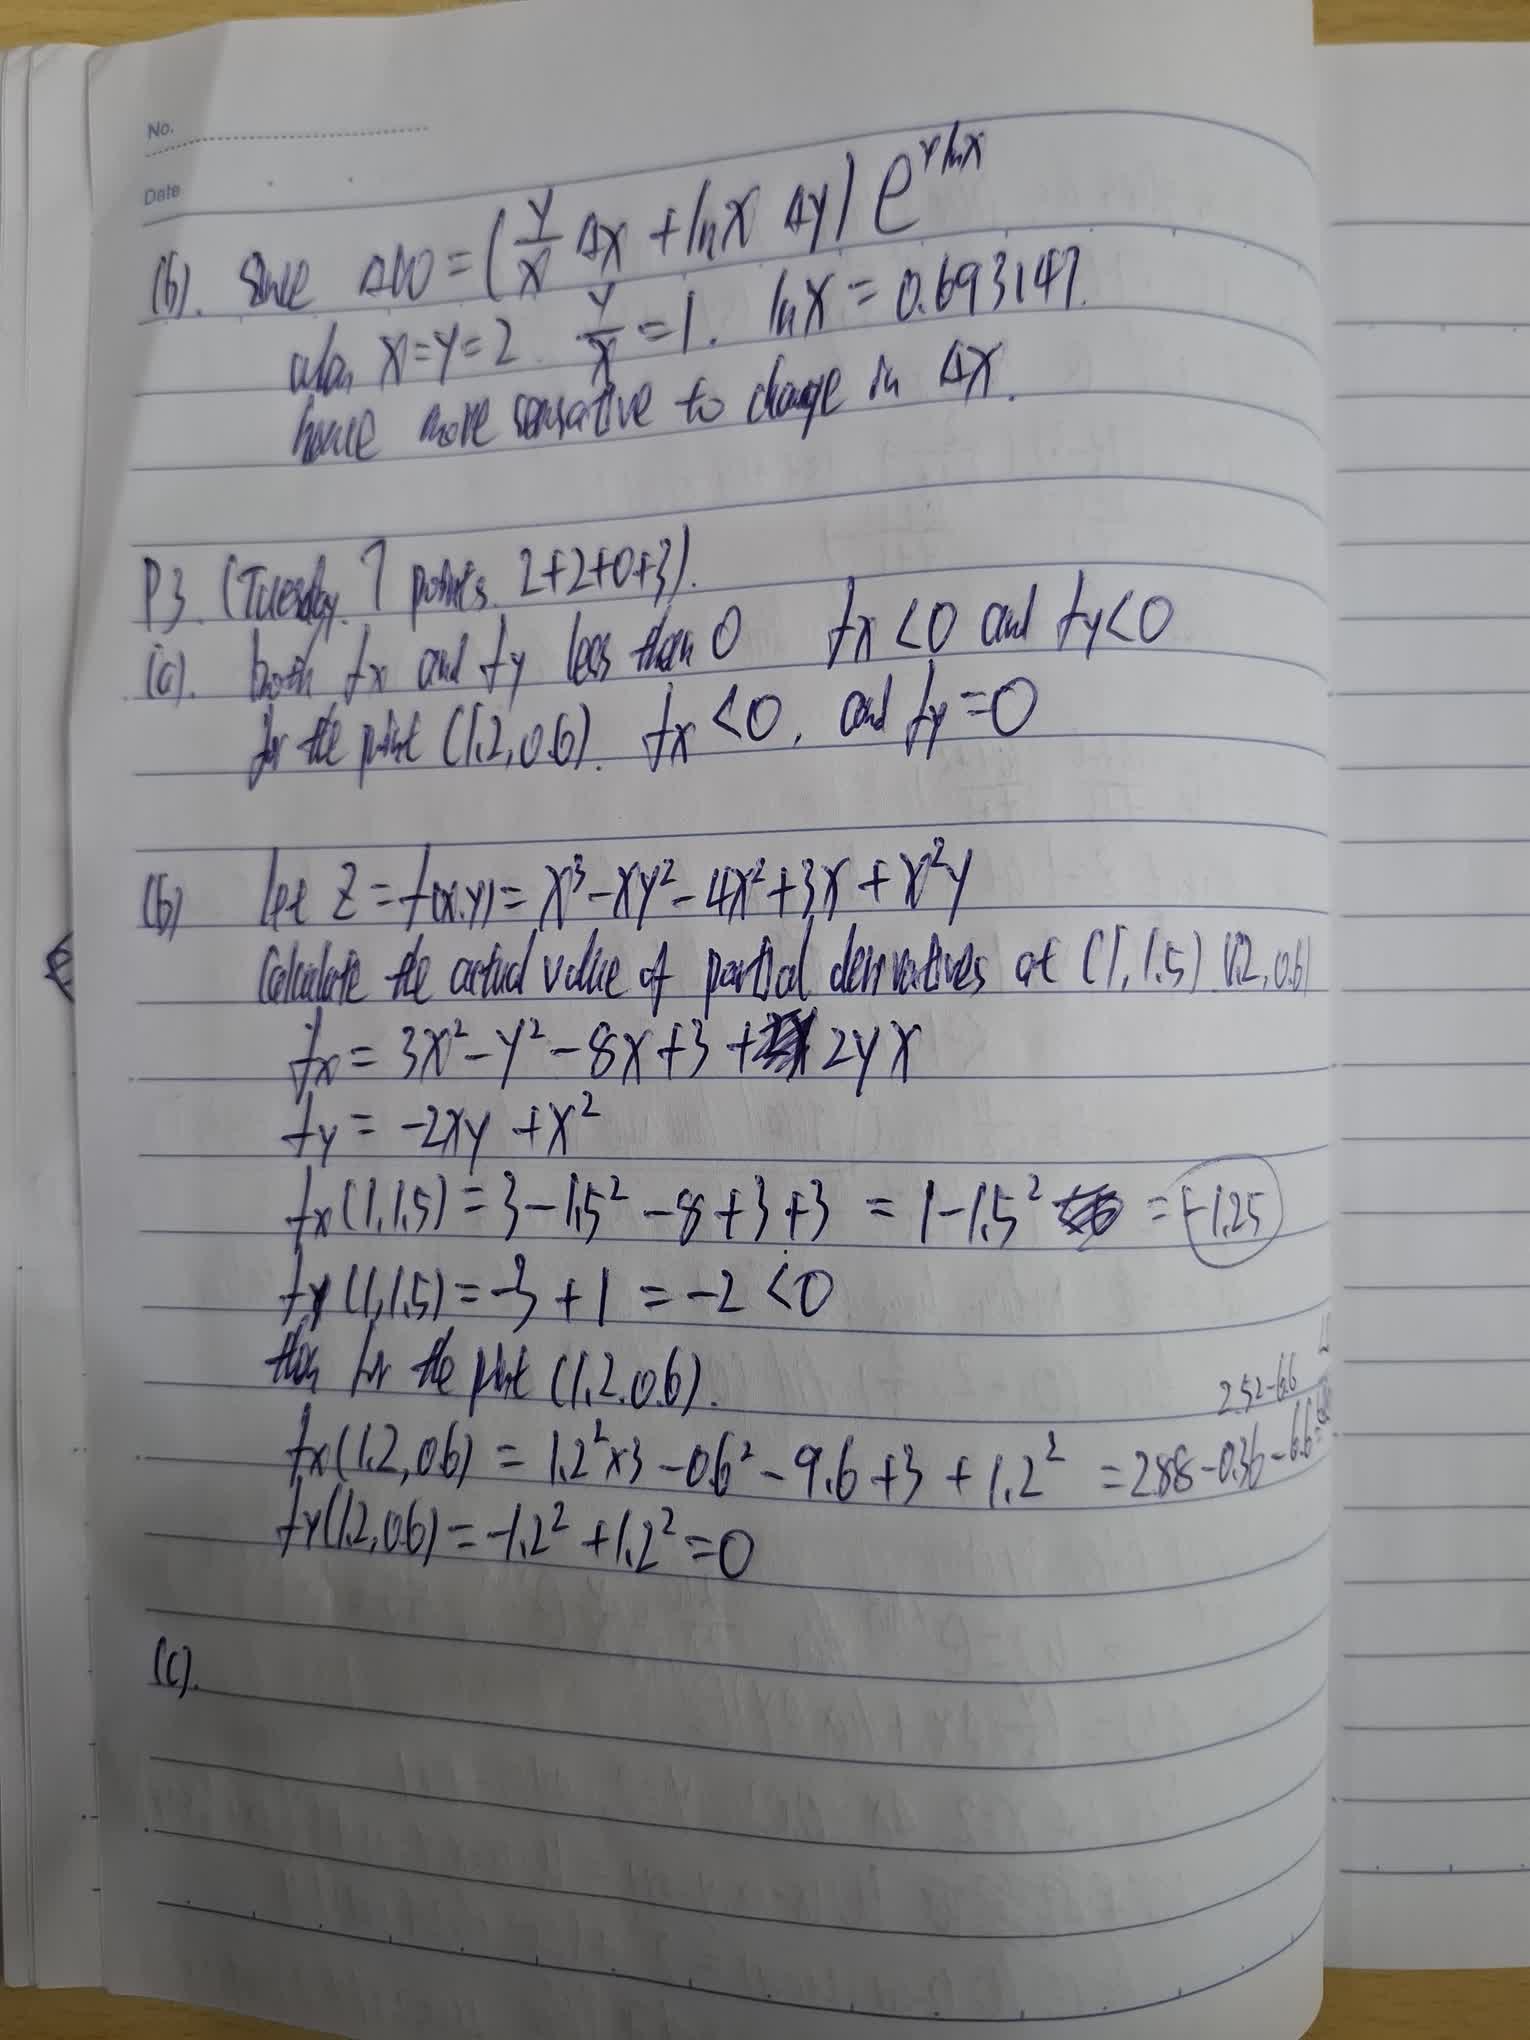 No.
Date
(b). Since Δω = (y/x Δx + ln x Δy) e^{y ln x}
when x=y=2. y/x = 1. ln x = 0.693147.
hence more sensative to change in Δx.
P3. (Tuesday. 7 points. 2+2+0+3).
(a). both fx and fy less than 0 fx<0 and fy<0
for the point (1.2, 0.6). fx<0, and fy=0
(b) let z = f(x,y) = x³-xy²-4x²+3x+x²y
Calculate the actual value of partial derivatives at (1, 1.5) (1.2, 0.6)
fx = 3x²-y²-8x+3+2yx
fy = -2xy+x²
fx(1,1.5) = 3-1.5²-8+3+3 = 1-1.5² = -1.25
fy(1,1.5) = -3+1 = -2<0
then for the point (1.2,0.6).
2.52-6.6
fx(1.2,0.6) = 1.2²×3-0.6²-9.6+3+1.2² = 2.88-0.36-6.6
fy(1.2,0.6) = -1.2²+1.2²=0
(c).